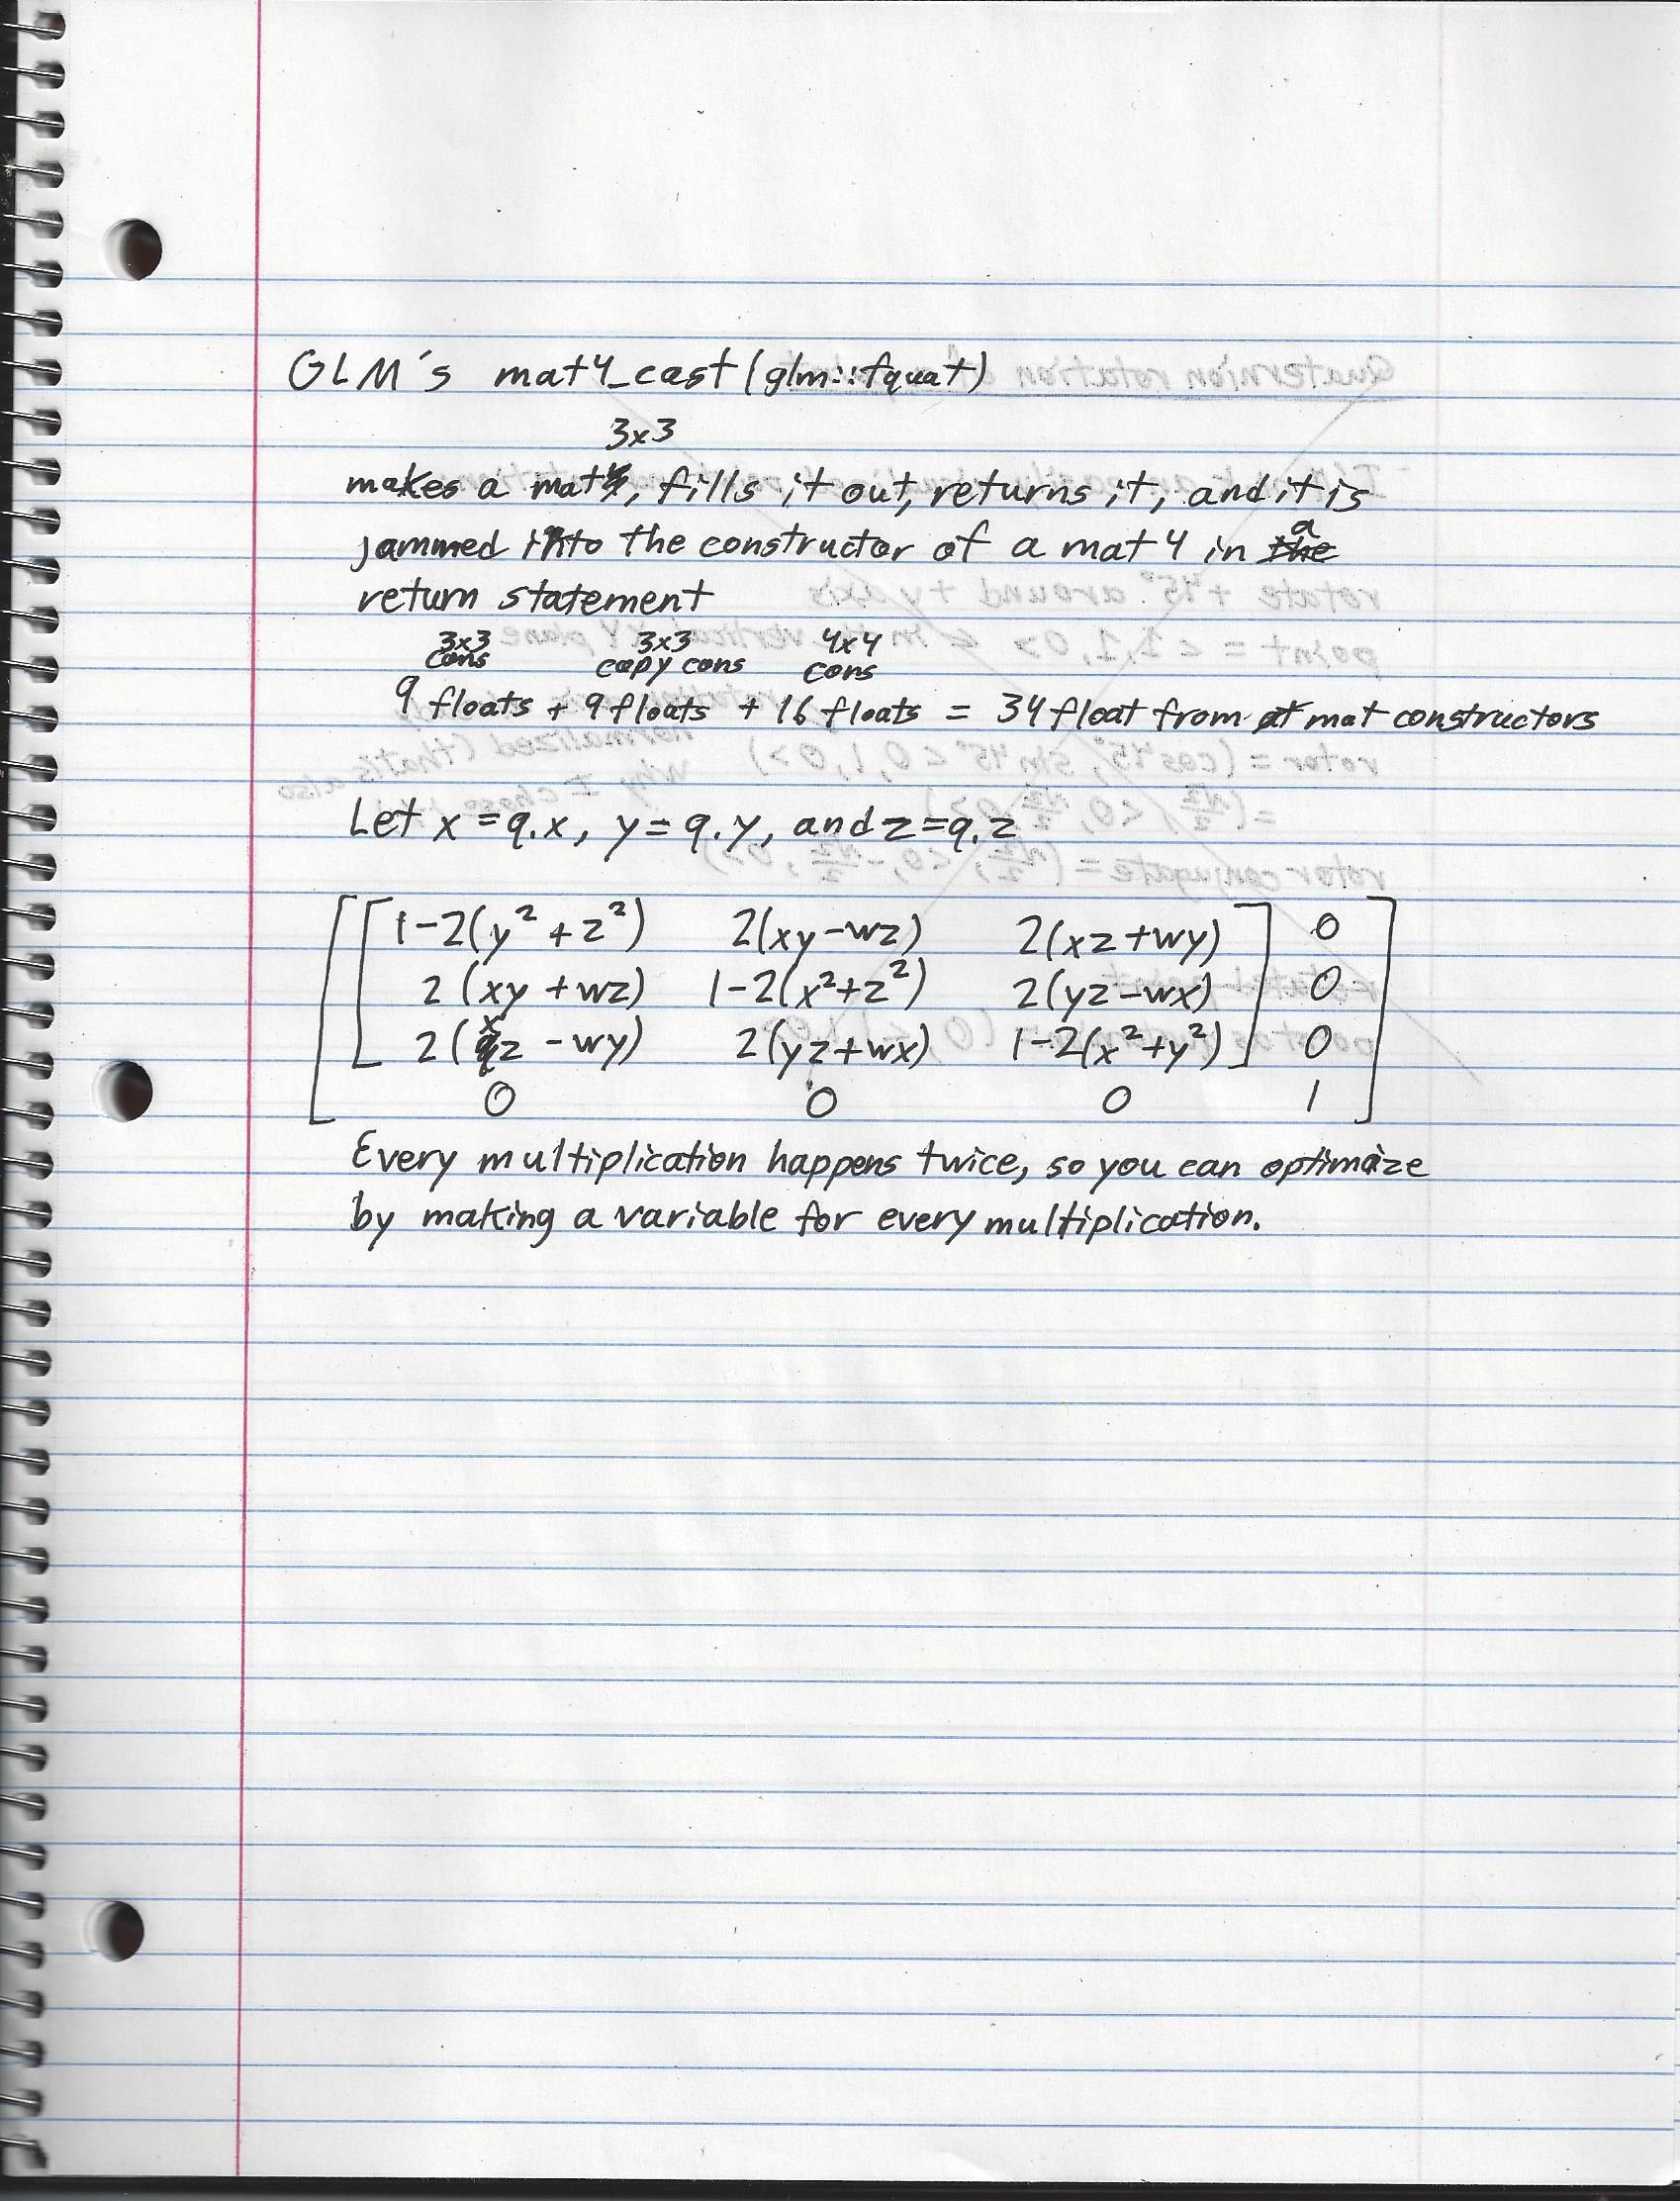 GLM's mat4_cast(glm::fquat)
3x3
makes a mat, fills it out, returns it, and it is
a
jammed into the constructor of a mat4 in the
return statement
3x3 3x3 4x4
cons copy cons cons
9 floats + 9 floats + 16 floats = 34 float from mat constructors
Let x = q.x, y = q.y, and z = q.z
1-2(y²+z²) 2(xy-wz) 2(xz+wy) 0
2(xy+wz) 1-2(x²+z²) 2(yz-wx) 0
2(xz-wy) 2(yz+wx) 1-2(x²+y²) 0
0 0 0 1
Every multiplication happens twice, so you can optimize
by making a variable for every multiplication.